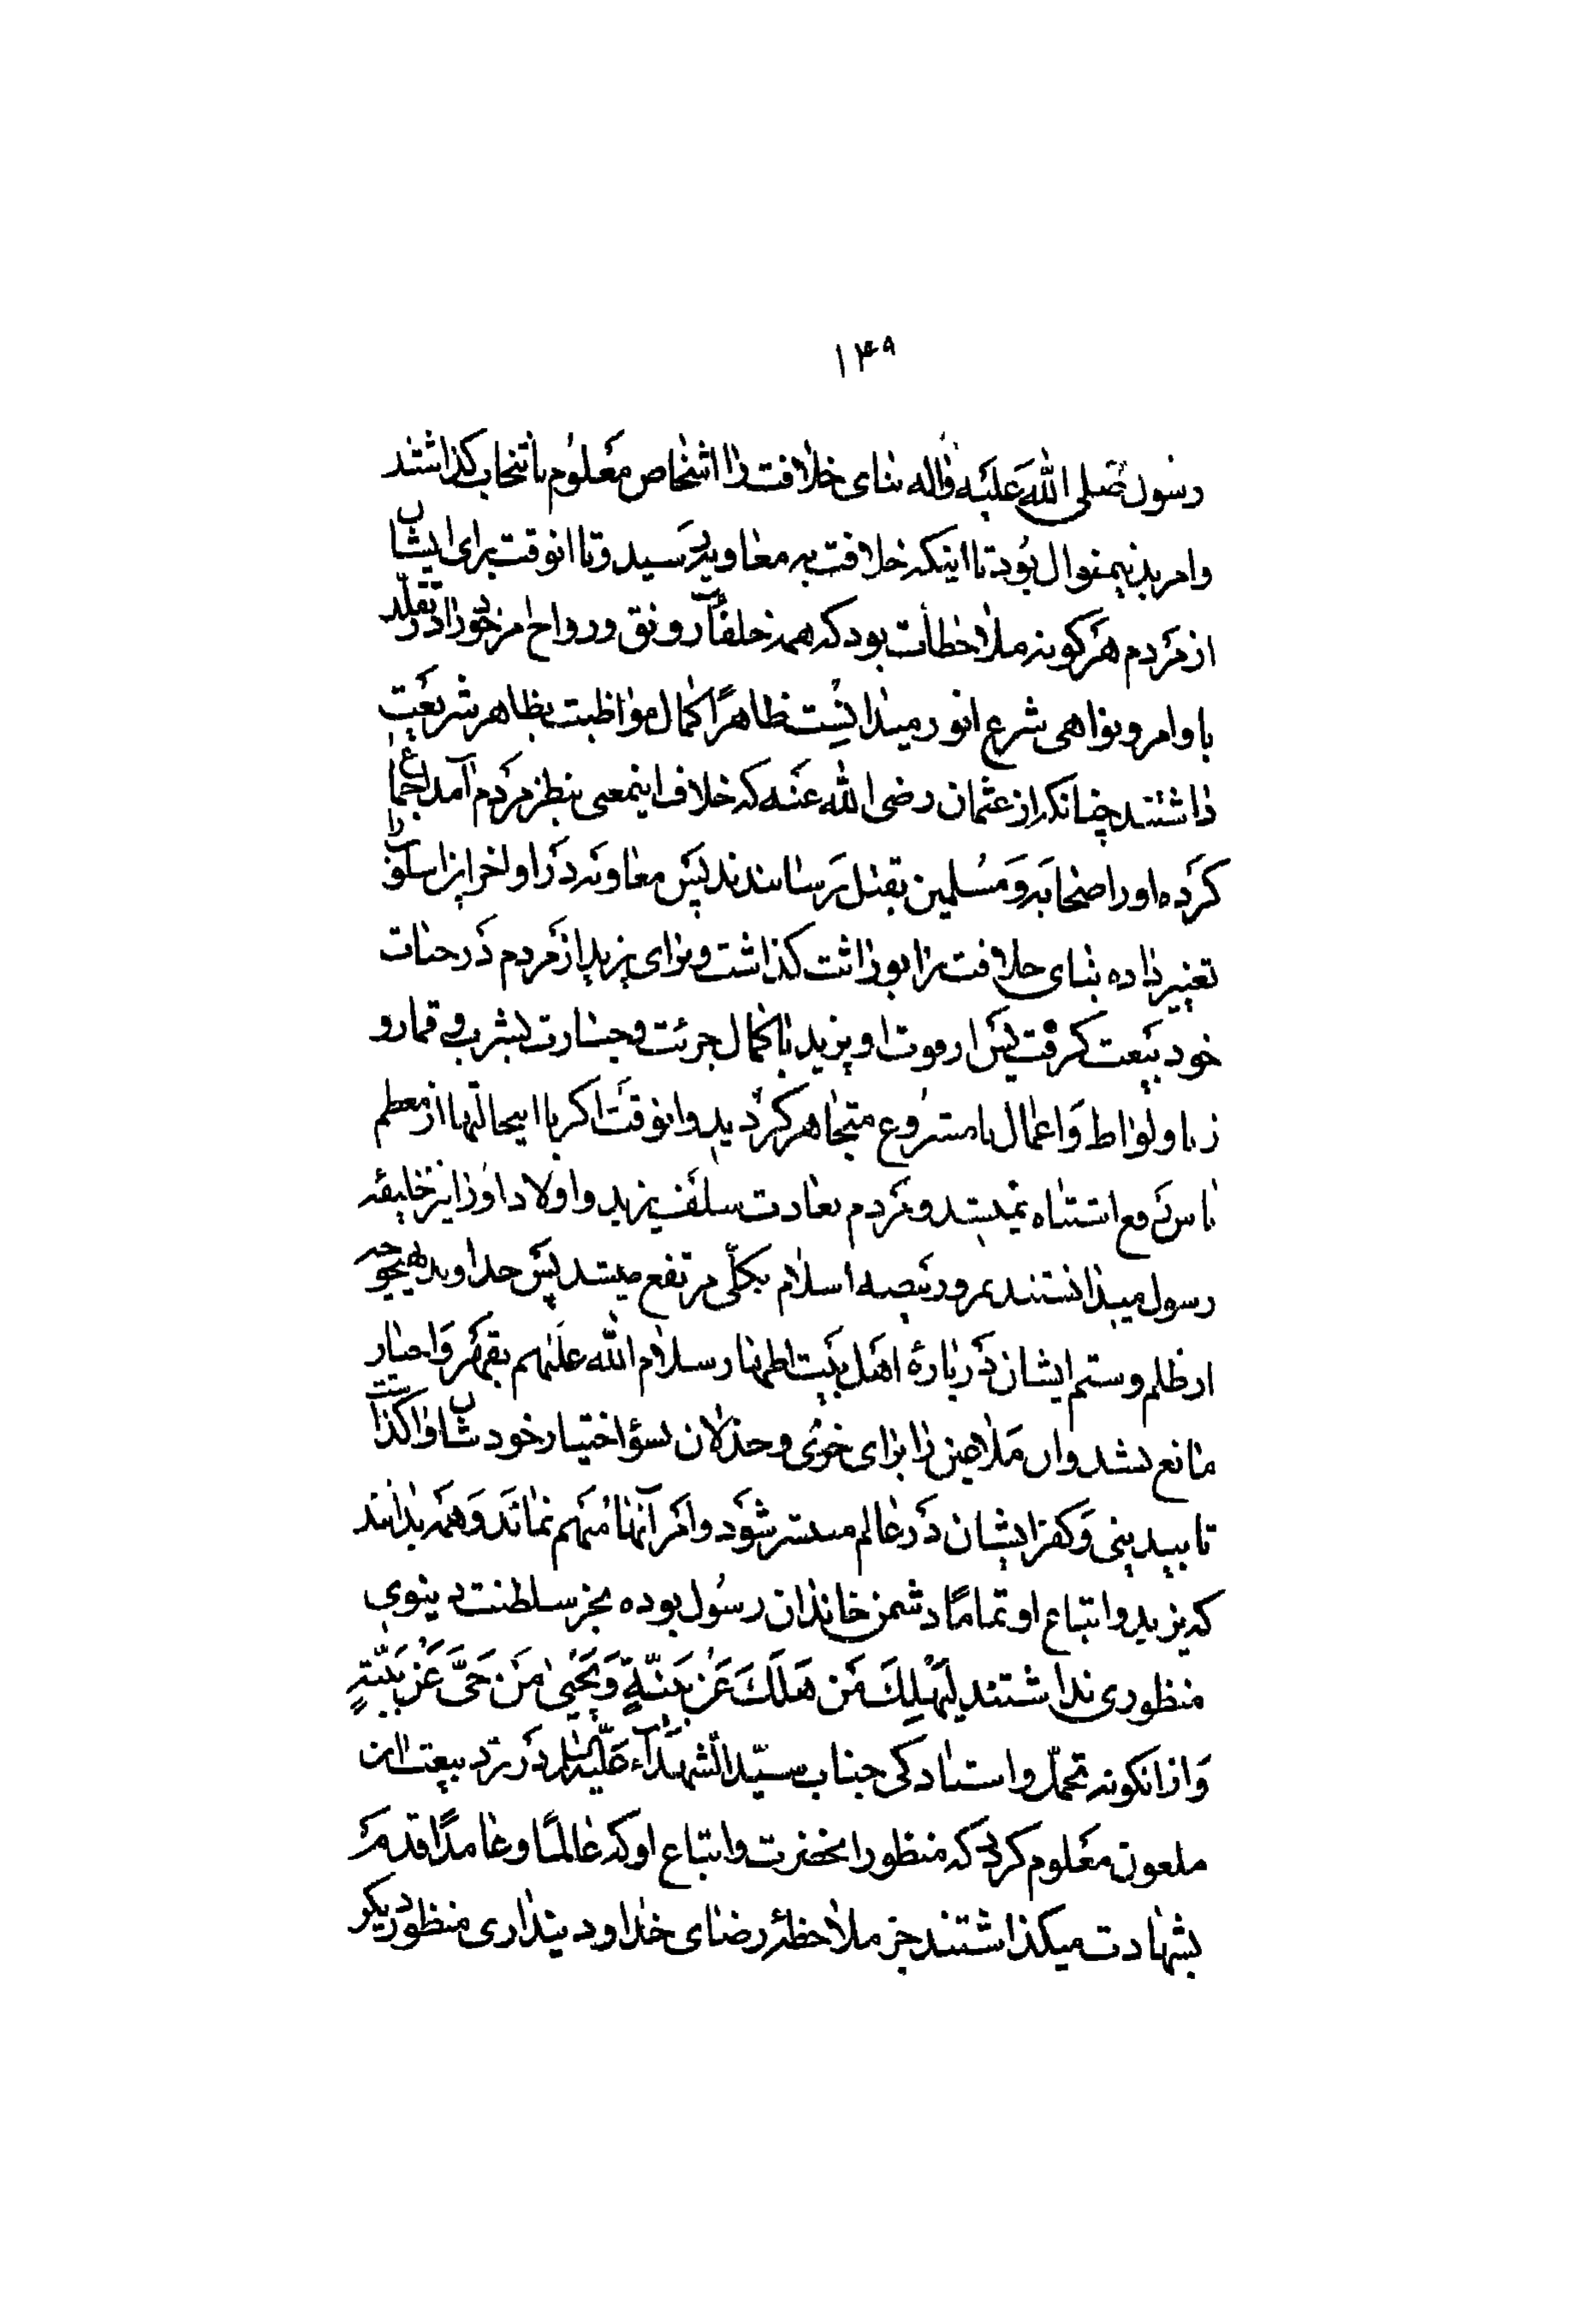 ۱۴۹
رسول صلی الله علیه واله بنای خلافت را اشخاص معلوم بانتخاب کذاشتند
وامر بدینمنوال بود تا اینکه خلافت به معاویه رسید وتا انوقت برای ایشان
از مردم هرکونه ملاحظات بود که همه خلفا رونق ورواج امر خود را در تقلّد
باوامر ونواهی شرع انور میدانست ظاهرًا کمال مواظبت بظاهر شریعت
داشتند چنانکه از عثمان رضی الله عنه که خلاف اینمعنی بنظر مردم آمد اجماع
کرده اورا صحابه ومسلمین بقتل رسانیدند پس معاویه در اواخر این اسلوب را
تغییر داده بنای خلافت را بوراثت کذاشت وبرای یزید از مردم در حیات
خود بیعت کرفت پس از موت او یزید با کمال جرئت وجسارت بشرب وقمار و
زنا ولواط واعمال نامشروع متجاهر کردید وانوقت اکر با اینحالتها از معظم
ناس رفع اشتباه نمیشد ومردم بعادت سلف یزید واولاد او را نیز خلیفه
رسول میدانستند بمرور بیضه اسلام بکلّی مرتفع میشد پس خداوند بهیچوجه
از ظلم وستم ایشان در بارهٔ اهل بیت اطهار سلام الله علیهم بقهر واجبار
مانع نشد وان ملاعین را برای خزی وخذلان بسؤ اختیار خودشان واکذاشت
تا بیدینی وکفر ایشان در عالم منتشر شود وامر آنها مبهم نماند وهمه بدانند
که یزید واتباع او تمامًا دشمن خاندان رسول بوده بجز سلطنت دینوی
منظوری نداشتند لِیَهْلِكَ مَن هَلَكَ عَنْ بَیِّنَةٍ وَیَحْیٰی مَنْ حَیَّ عَنْ بَیِّنَةٍ
وازانکونه تحمّل واستادکی جناب سیّد الشهداء علیه السلام در نزد بیعت ان
ملعون معلوم کردید که منظور انحضرت واتباع او که عالمًا وعامدًا قدم
بشهادت میکذاشتند جز ملاحظهٔ رضای خدا ودینداری منظور دیکر